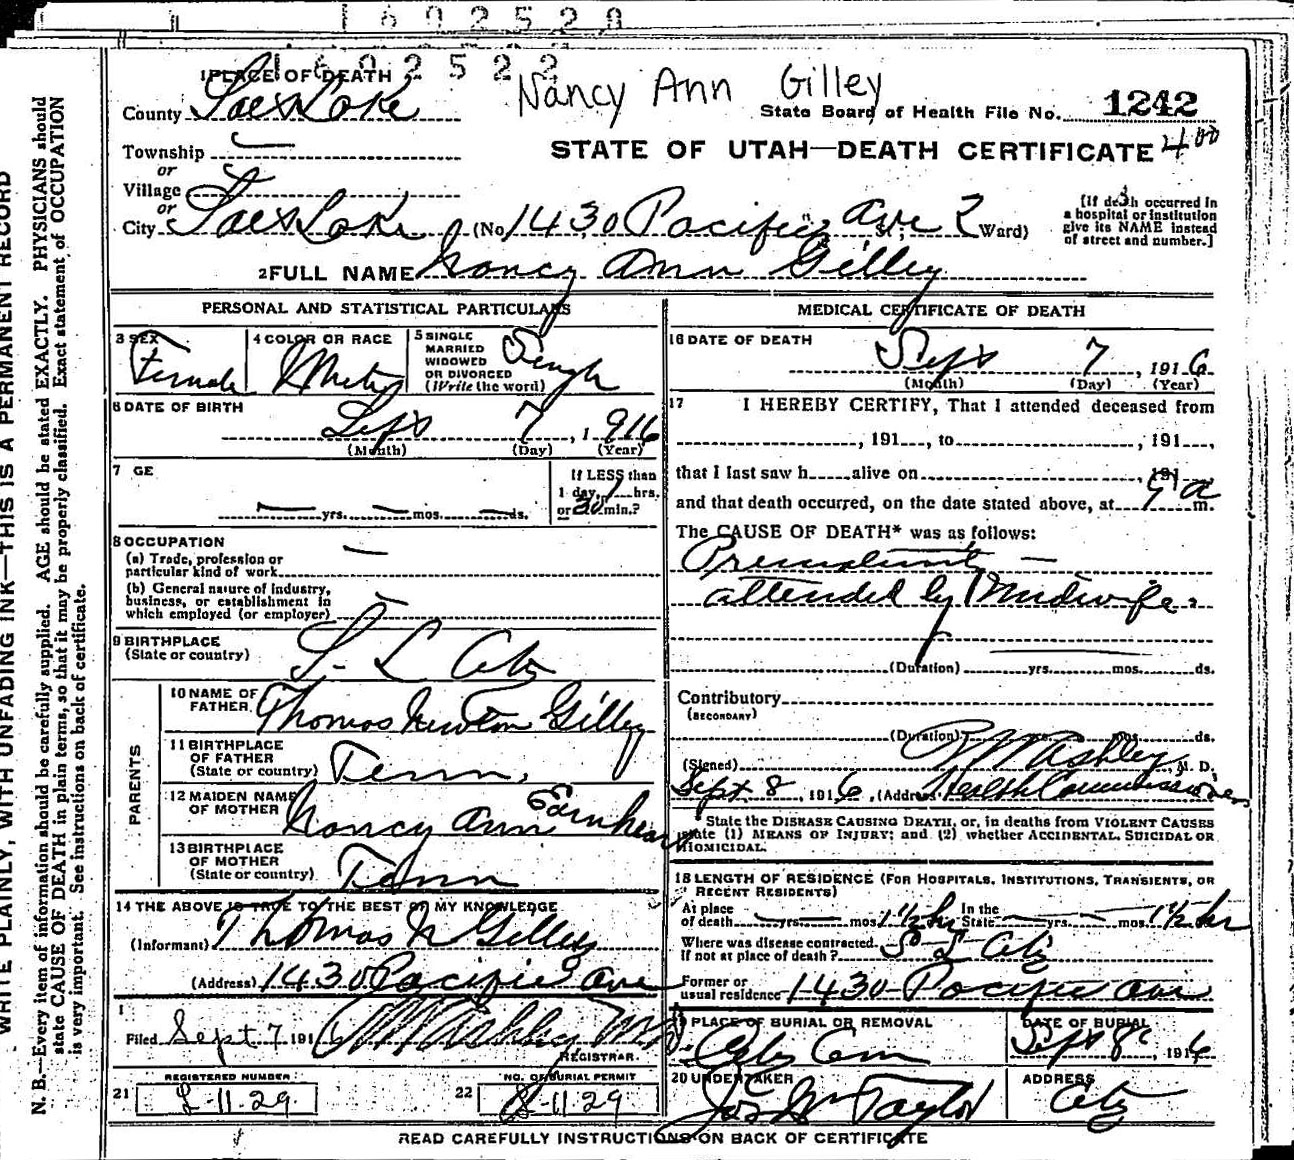 1692528
1692522
Nancy Ann Gilley
1 PLACE OF DEATH
County Salt Lake
State Board of Health File No. 1242
400
STATE OF UTAH—DEATH CERTIFICATE
Township
or
Village
or
City Salt Lake (No. 1430 Pacific Ave St.; 2 Ward)
3
[If death occurred in
a hospital or institution
give its NAME instead
of street and number.]
2 FULL NAME Nancy Ann Gilley
PERSONAL AND STATISTICAL PARTICULARS
3 SEX Female
4 COLOR OR RACE White
5 SINGLE
MARRIED
WIDOWED
OR DIVORCED
(Write the word) Single
6 DATE OF BIRTH Sept 7, 1916
(Month) (Day) (Year)
7 GE
— yrs. — mos. — ds.
If LESS than
1 day, 1 hrs.
or 30 min.?
8 OCCUPATION
(a) Trade, profession or
particular kind of work —
(b) General nature of industry,
business, or establishment in
which employed (or employer) —
9 BIRTHPLACE
(State or country) S. L. City
PARENTS
10 NAME OF
FATHER Thomas Newton Gilley
11 BIRTHPLACE
OF FATHER
(State or country) Tenn.
12 MAIDEN NAME
OF MOTHER Nancy Ann Earnheart
13 BIRTHPLACE
OF MOTHER
(State or country) Tenn
14 THE ABOVE IS TRUE TO THE BEST OF MY KNOWLEDGE
(Informant) Thomas N Gilley
(Address) 1430 Pacific Ave
Filed Sept. 7 1916 Ashley M.D.
REGISTRAR
REGISTERED NUMBER
21 L-1129
NO. OF BURIAL PERMIT
22 L-1129
MEDICAL CERTIFICATE OF DEATH
16 DATE OF DEATH
Sept 7, 1916
(Month) (Day) (Year)
17 I HEREBY CERTIFY, That I attended deceased from
, 191 , to , 191 ,
that I last saw h alive on , 191
and that death occurred, on the date stated above, at 7 a m.
The CAUSE OF DEATH* was as follows:
Prematurity —
attended by Midwife.
(Duration) yrs. mos. ds.
Contributory
(SECONDARY)
(Duration) yrs. mos. ds.
(Signed) Ashley, M. D.
Sept. 8, 1916, (Address) Health Commissioner
State the DISEASE CAUSING DEATH, or, in deaths from VIOLENT CAUSES
state (1) MEANS OF INJURY; and (2) whether ACCIDENTAL, SUICIDAL OR
HOMICIDAL.
18 LENGTH OF RESIDENCE (FOR HOSPITALS, INSTITUTIONS, TRANSIENTS, OR
RECENT RESIDENTS)
At place
of death — yrs. — mos. 1½ hr
In the
State — yrs. — mos. 1½ hr
Where was disease contracted
If not at place of death? S L City
Former or
usual residence 1430 Pacific Ave
19 PLACE OF BURIAL OR REMOVAL
City Cem
DATE OF BURIAL
Sept 8, 1916
20 UNDERTAKER
Jos Wm Taylor
ADDRESS
City
READ CAREFULLY INSTRUCTIONS ON BACK OF CERTIFICATE
WRITE PLAINLY, WITH UNFADING INK—THIS IS A PERMANENT RECORD
N. B.—Every item of information should be carefully supplied. AGE should be stated EXACTLY. PHYSICIANS should
state CAUSE OF DEATH in plain terms, so that it may be properly classified. Exact statement of OCCUPATION
is very important. See instructions on back of certificate.